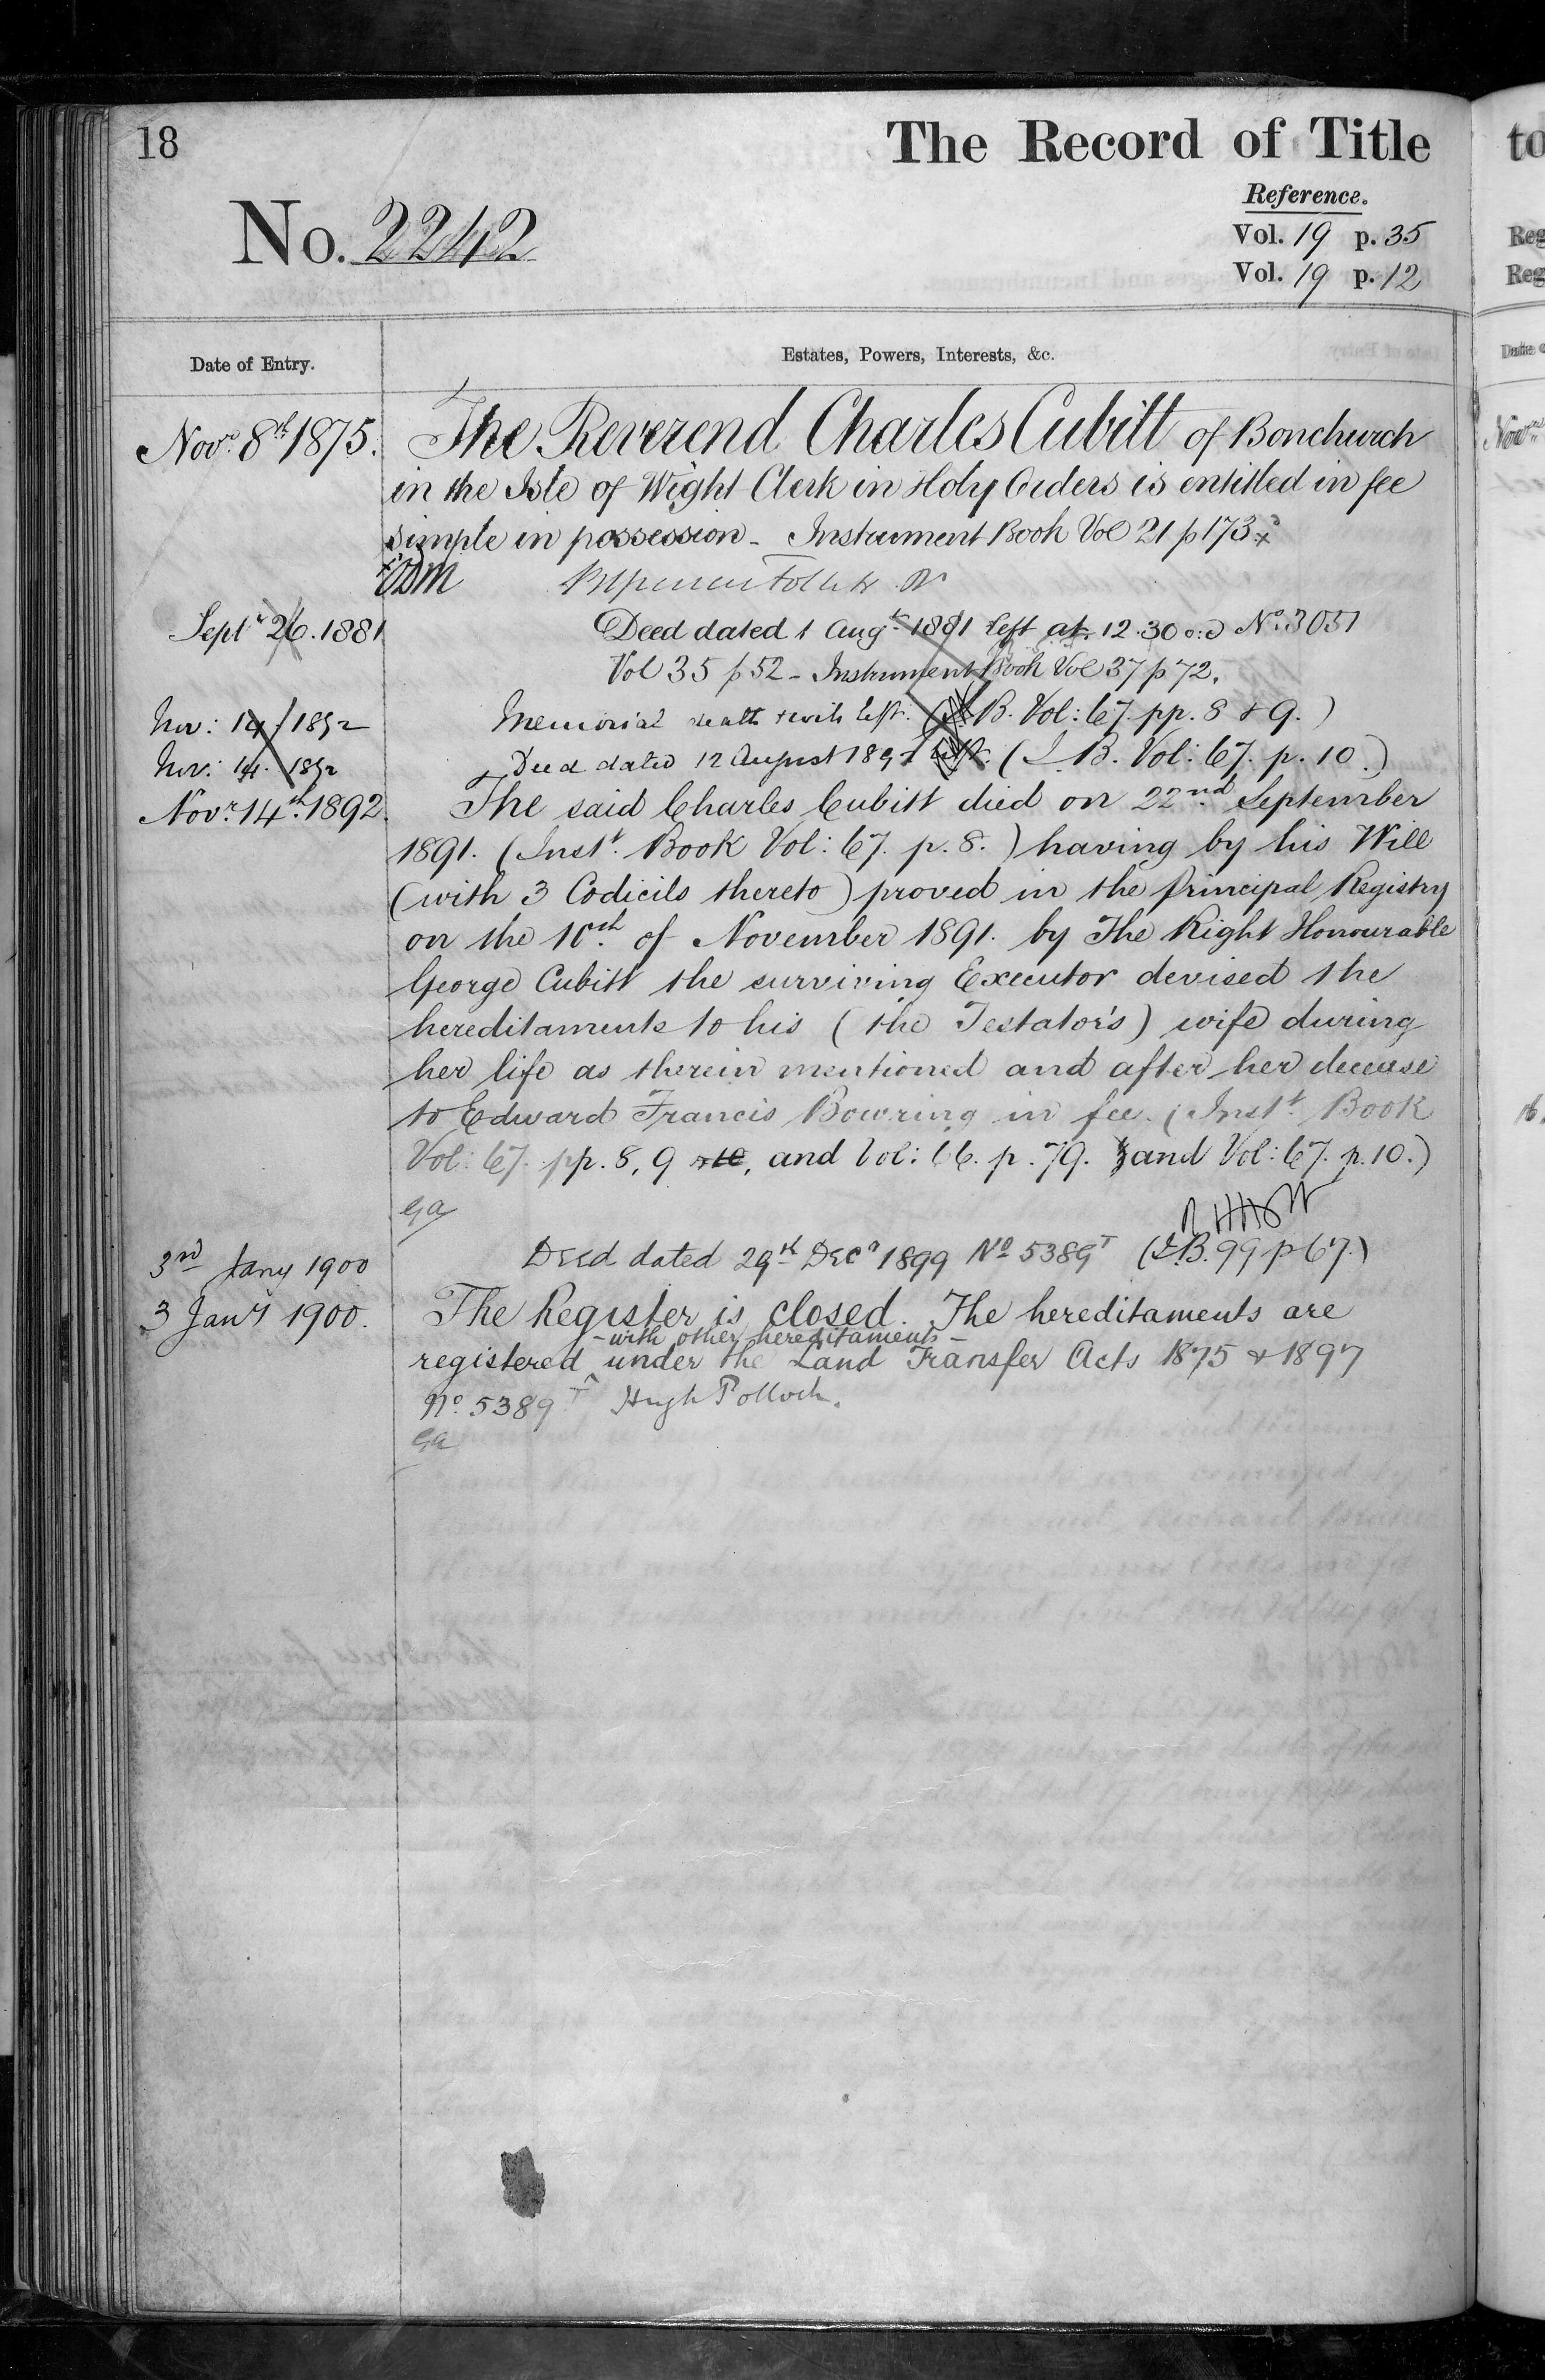 18
The Record of Title
Reference.
No. 2242
Vol. 19 p. 35
Vol. 19 p. 12
Date of Entry.
Estates, Powers, Interests, &c.
Novr. 8th 1875. The Reverend Charles Cubitt of Bonchurch
in the Isle of Wight Clerk in Holy Orders is entitled in fee
simple in possession - Instrument Book Vol 21 p 173
Septr 26. 1881 Deed dated 1 Augt 1881 left at 12.30 No. 3051
Vol 35 p 52 - Instrument Book Vol 37 p 72.
Nov: 14 / 1892 Memorial death & will left. (I.B. Vol: 67. pp. 8 & 9.)
Nov: 14. 1892 Deed dated 12 August 1891 left. (I.B. Vol: 67. p. 10.)
Novr. 14th. 1892. The said Charles Cubitt died on 22nd September
1891. (Inst. Book Vol: 67. p. 8.) having by his Will
(with 3 Codicils thereto) proved in the Principal Registry
on the 10th. of November 1891. by The Right Honourable
George Cubitt the surviving Executor devised the
hereditaments to his (the Testator's) wife during
her life as therein mentioned and after her decease
to Edward Francis Bowring in fee. (Inst. Book
Vol: 67. pp. 8, 9 & 10, and Vol: 66. p. 79. and Vol: 67. p. 10.)
Ga
3rd Jany 1900 Deed dated 29th Decr 1899 No 5389T (I.B. 99 p 67.)
3 Jany 1900. The Register is closed. The hereditaments are
- with other hereditaments -
registered ^ under the Land Transfer Acts 1875 & 1897
No. 5389T Hugh Pollock.
Ga
to
Reg
Reg